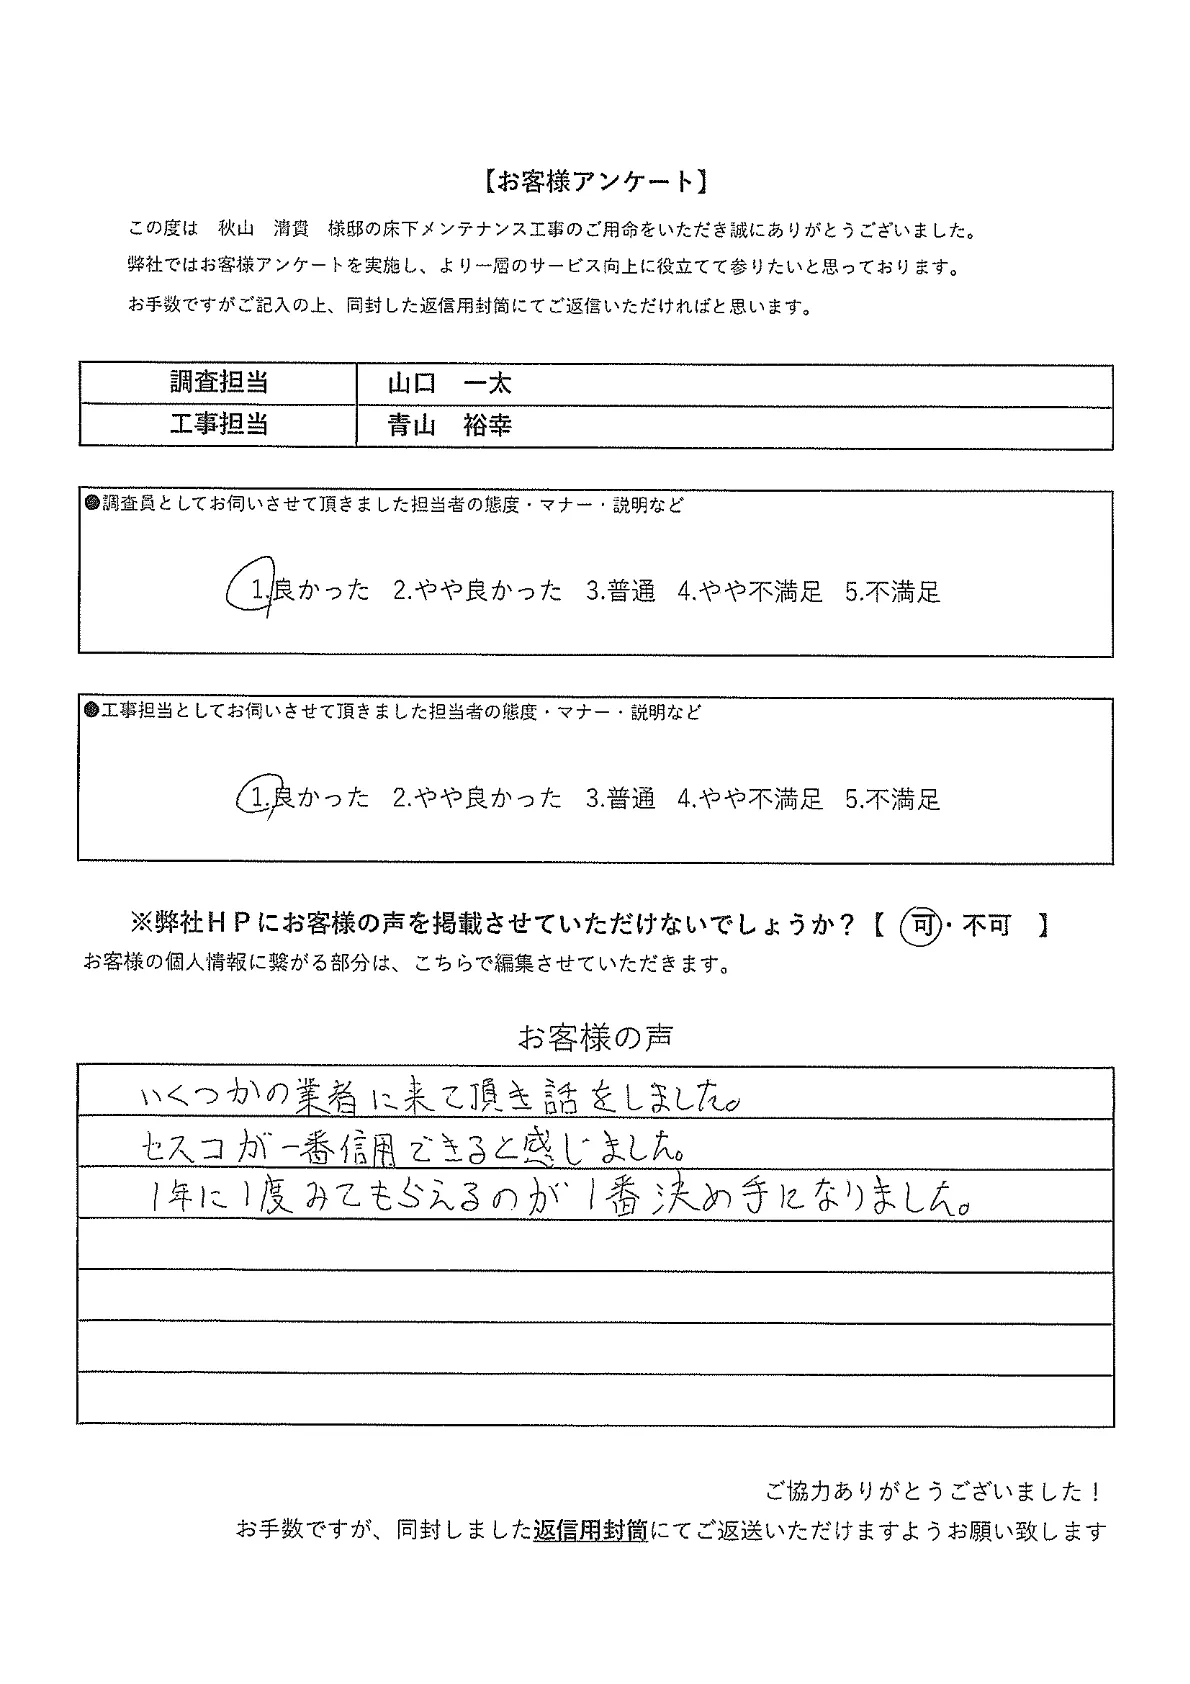 【お客様アンケート】
この度は　秋山　清貴　様邸の床下メンテナンス工事のご用命をいただき誠にありがとうございました。
弊社ではお客様アンケートを実施し、より一層のサービス向上に役立てて参りたいと思っております。
お手数ですがご記入の上、同封した返信用封筒にてご返信いただければと思います。
調査担当　山口　一太
工事担当　青山　裕幸
●調査員としてお伺いさせて頂きました担当者の態度・マナー・説明など
1.良かった　2.やや良かった　3.普通　4.やや不満足　5.不満足
●工事担当としてお伺いさせて頂きました担当者の態度・マナー・説明など
1.良かった　2.やや良かった　3.普通　4.やや不満足　5.不満足
※弊社ＨＰにお客様の声を掲載させていただけないでしょうか？【　可・不可　】
お客様の個人情報に繋がる部分は、こちらで編集させていただきます。
お客様の声
いくつかの業者に来て頂き話をしました。
セスコが一番信用できると感じました。
1年に1度みてもらえるのが1番決め手になりました。
ご協力ありがとうございました！
お手数ですが、同封しました返信用封筒にてご返送いただけますようお願い致します